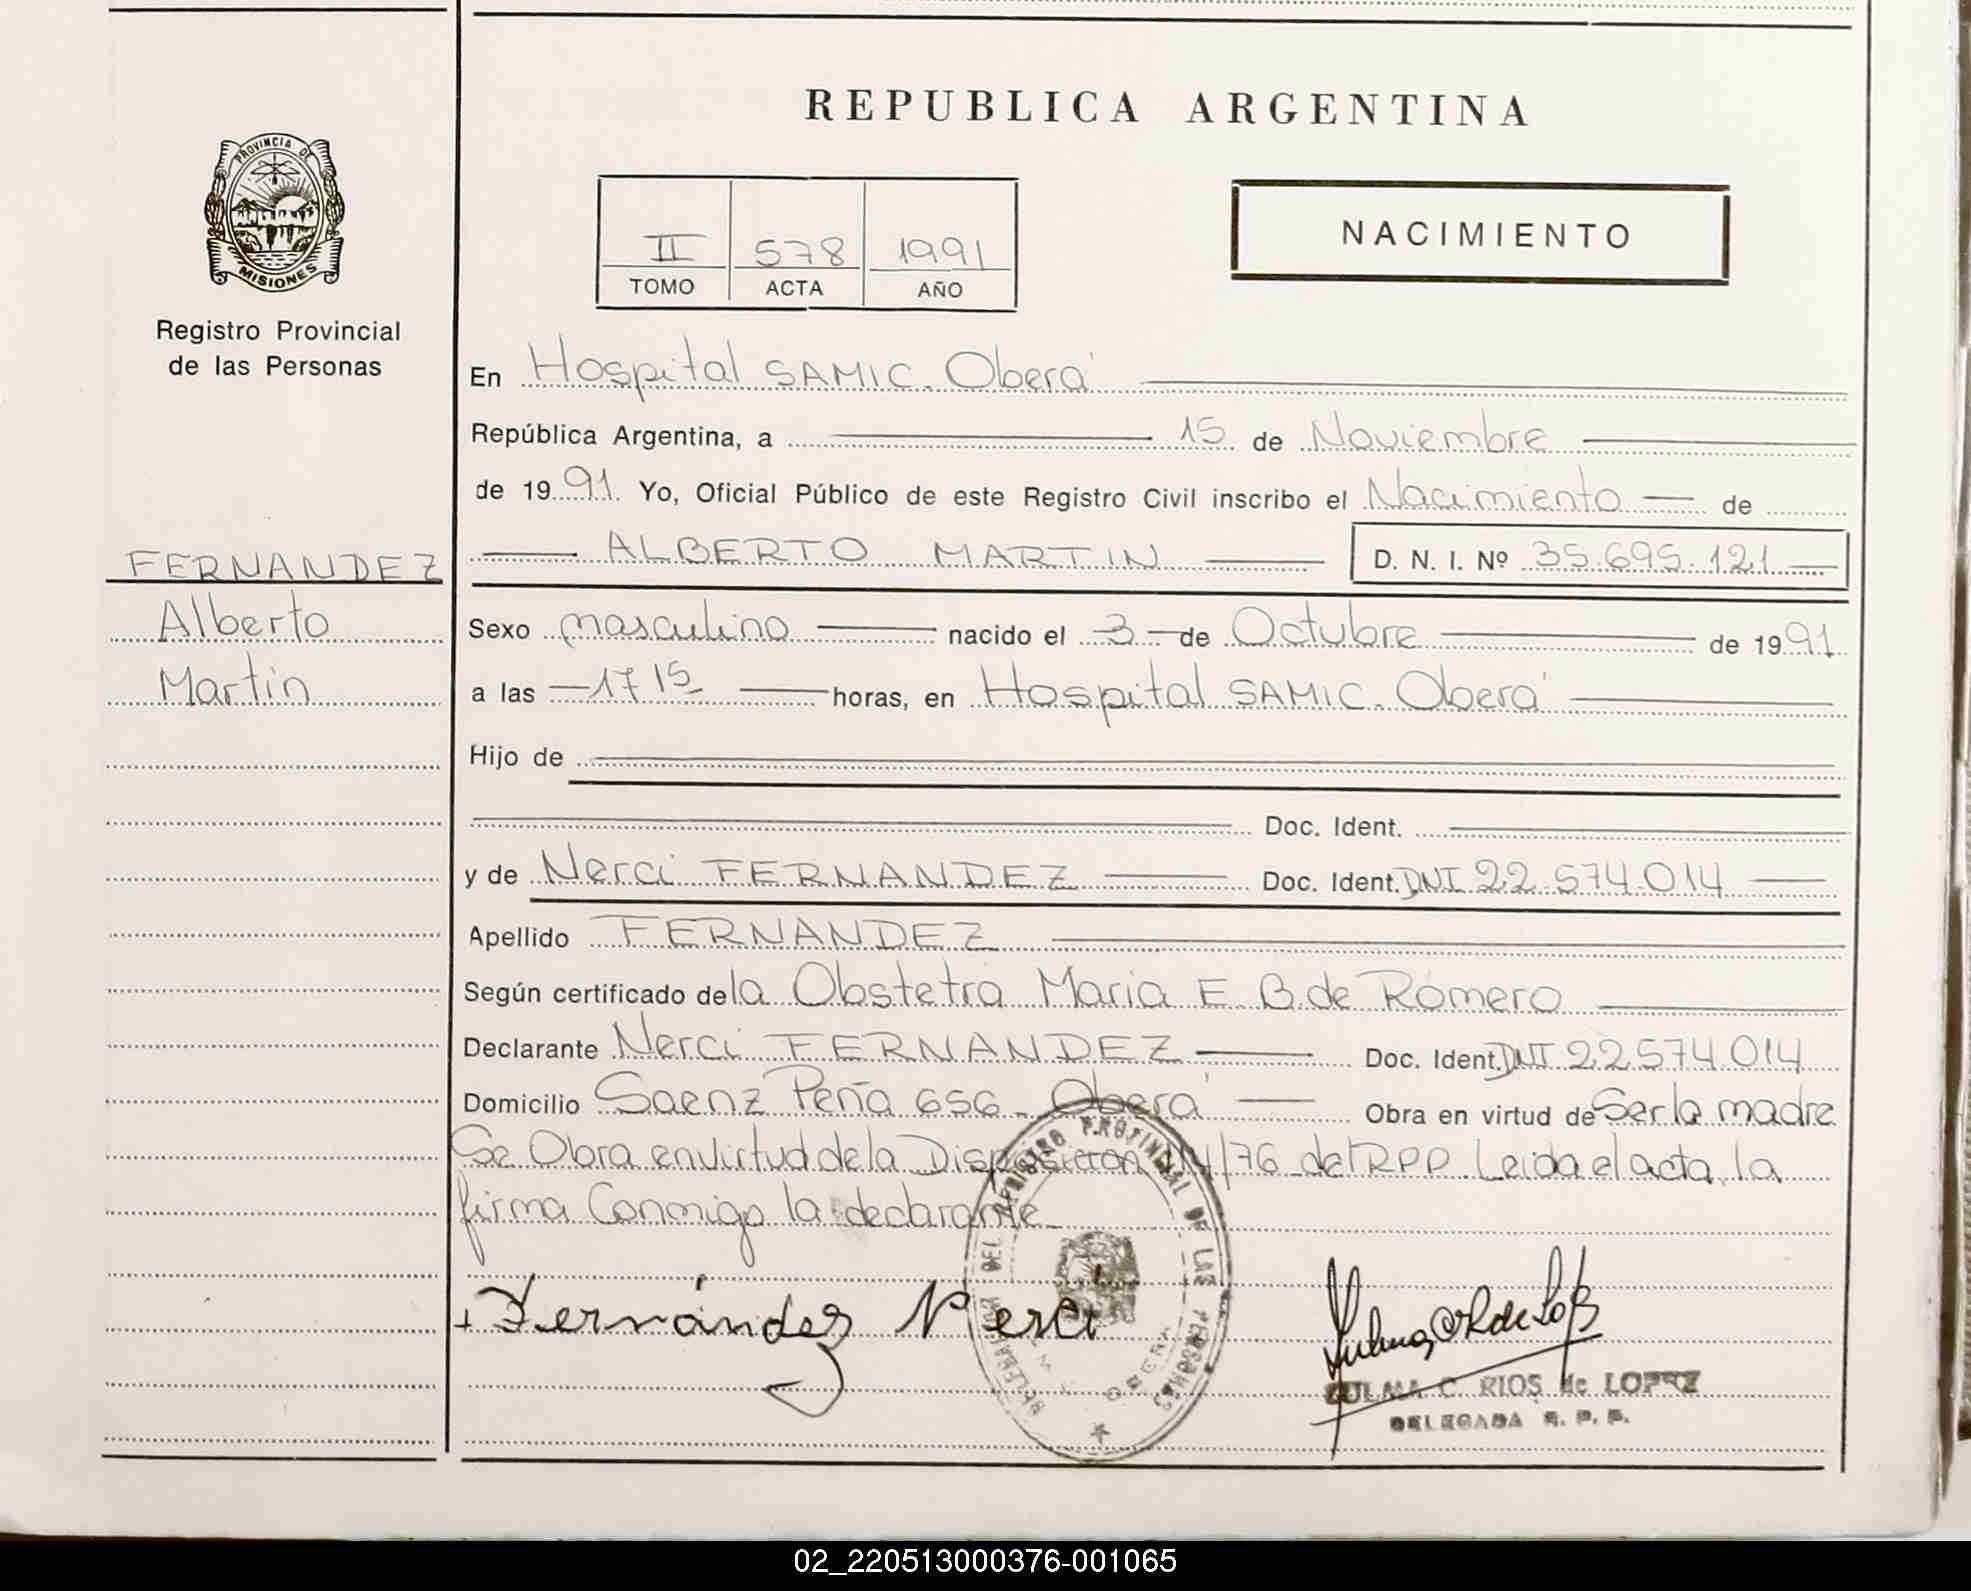 REPUBLICA ARGENTINA
PROVINCIA DE
MISIONES
Registro Provincial
de las Personas
II 578 1991
TOMO ACTA AÑO
NACIMIENTO
En Hospital SAMIC. Oberá
República Argentina, a 15 de Noviembre
de 1991. Yo, Oficial Público de este Registro Civil inscribo el Nacimiento de
FERNANDEZ
Alberto
Martin
ALBERTO MARTIN D. N. I. Nº 35.695.121
Sexo masculino nacido el 3 de Octubre de 1991
a las 17 15 horas, en Hospital SAMIC. Oberá
Hijo de
Doc. Ident.
y de Nerci FERNANDEZ Doc. Ident. DNI 22.574.014
Apellido FERNANDEZ
Según certificado de la Obstetra Maria E B. de Romero
Declarante Nerci FERNANDEZ Doc. Ident. DNI 22574.014
Domicilio Saenz Peña 656 - Oberá Obra en virtud de Ser la madre
Se Obra en virtud de la Disposicion /76 del RPP. Leida el acta, la
firma Conmigo la declarante
REGISTRO PROVINCIAL DE LAS PERSONAS
OBERA
Fernández Nerci
ZULMA C. RIOS de LOPEZ
DELEGADA R. P. P.
02_220513000376-001065